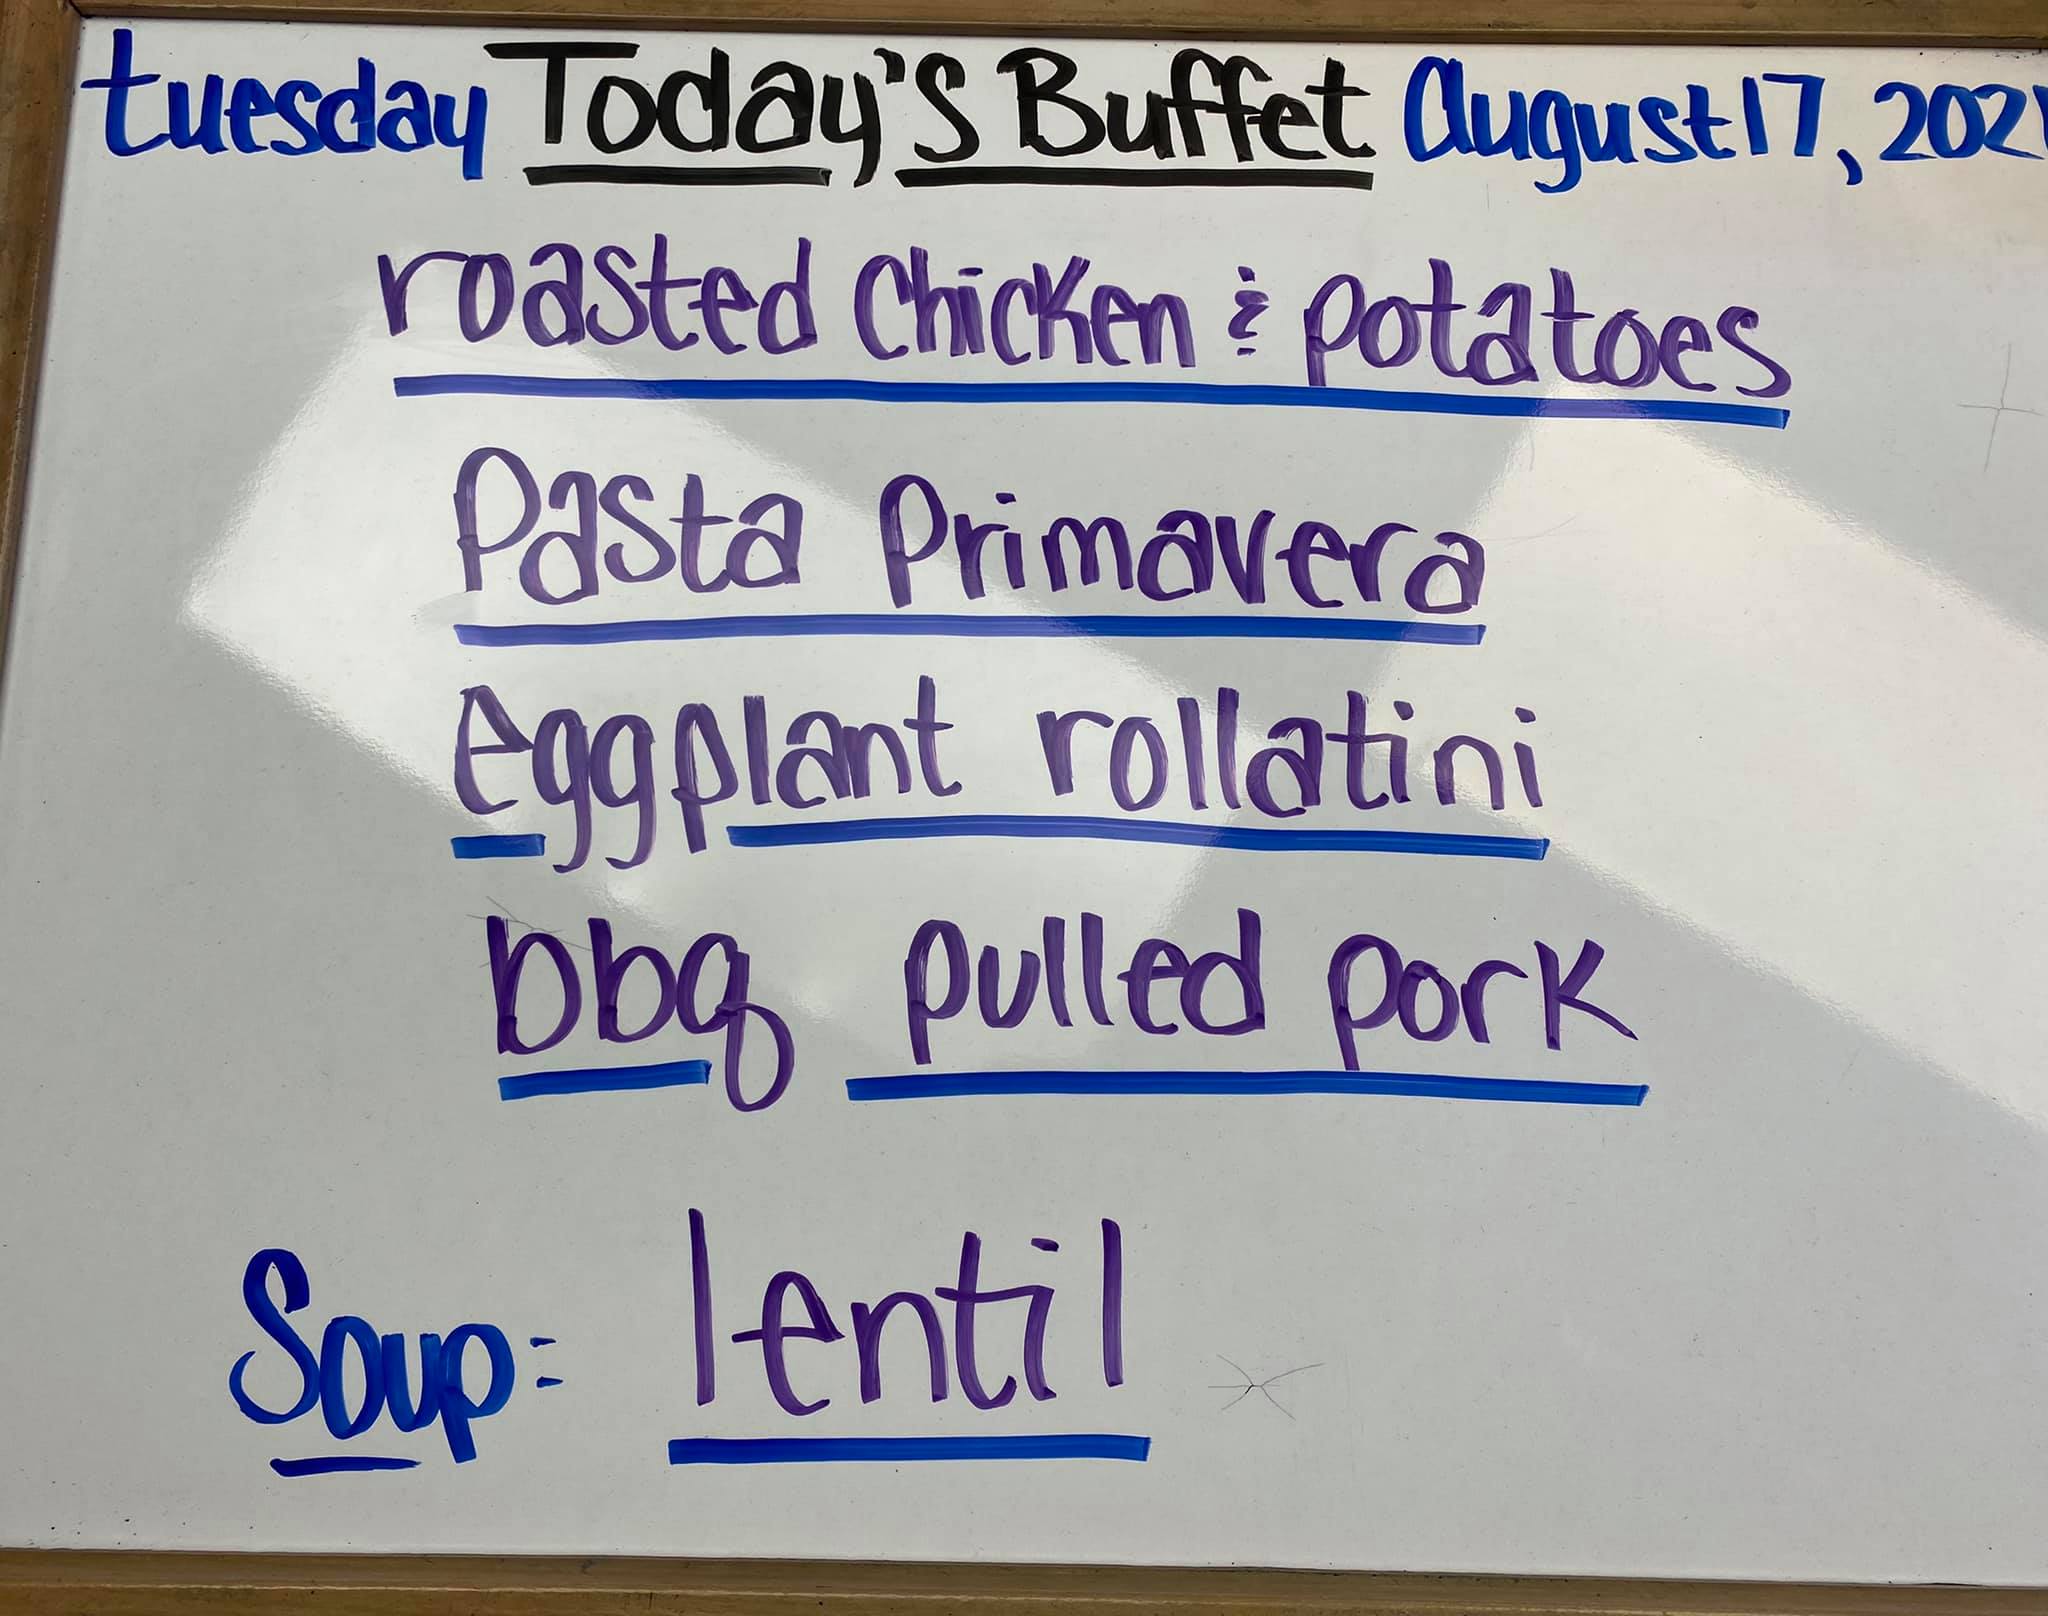 tuesday Today's Buffet August 17, 2021
roasted Chicken & potatoes
Pasta Primavera
eggplant rollatini
bbq pulled pork
Soup: lentil